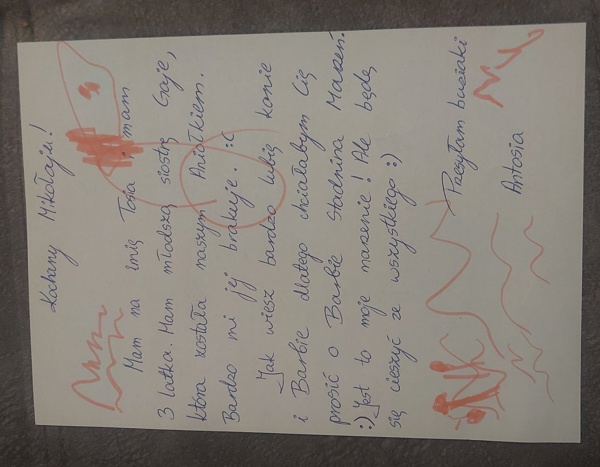 Kochany Mikołaju!
Mam na imię Tosia i mam
3 latka. Mam młodszą siostrę Gaje,
która została naszym Aniołkiem.
Bardzo mi jej brakuje. :C
Jak wiesz bardzo lubię konie
i Barbie dlatego chciałabym Cię
prosić o Barbie Stadnina Marzeń.
:) Jest to moje marzenie! Ale będę
się cieszyć ze wszystkiego :)
Przesyłam buziaki
Antosia